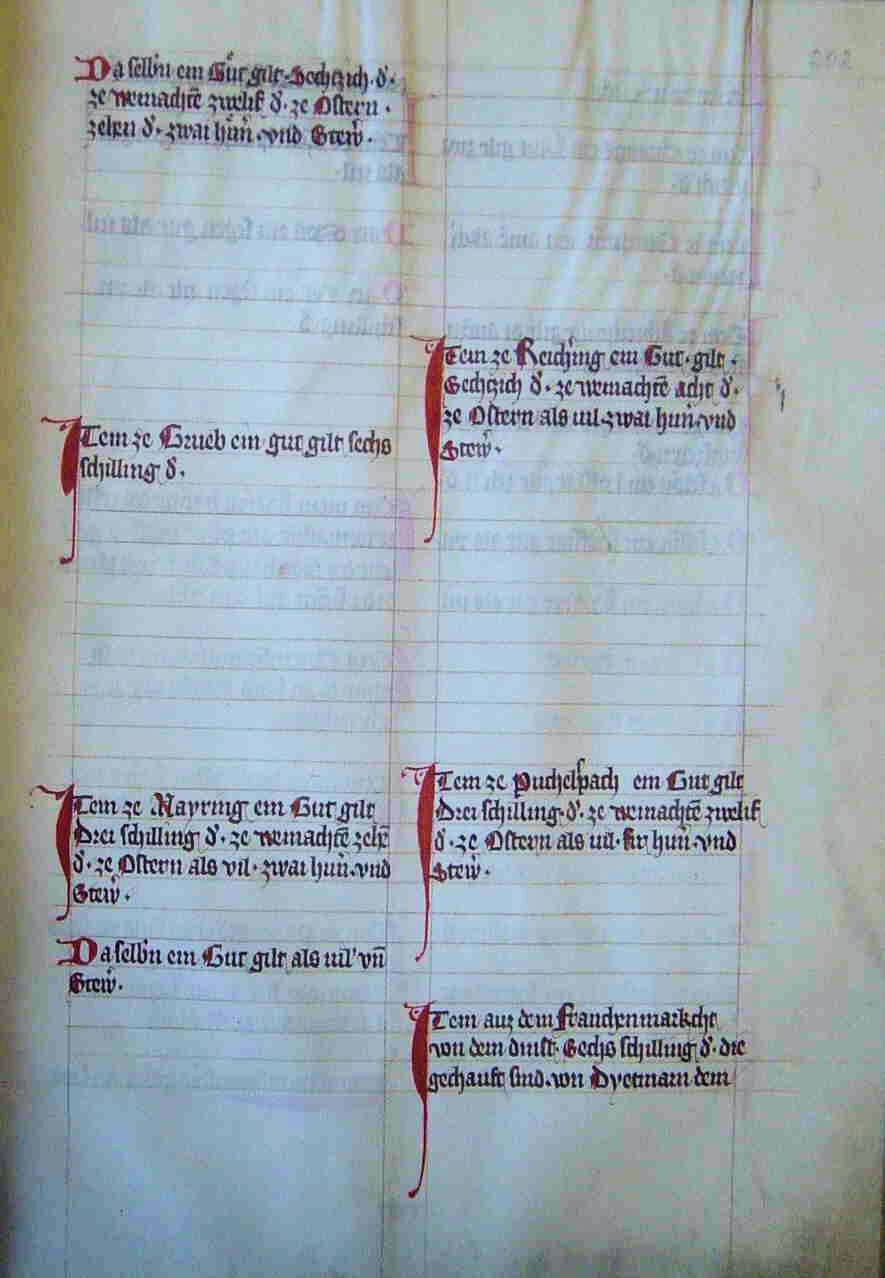 Da selbn ein Gut gilt Sechtzich · d̕ ·
ze weinachtē zwelif d̕ · ze Ostern ·
zehen d̕ · zwai hun̕ · vnd Stew̕ ·
Item ze Grueb ein gut gilt sechs
schilling d̕ ·
Item ze Mayring ein Gut gilt
Drei schilling d̕ · ze weinachtē zehē
d̕ · ze Ostern als vil · zwai hun̕ · vnd
Stew̕ ·
Da selbn ein Gut gilt als uil vn̄
Stew̕ ·
Item ze Reiching ein Gut · gilt ·
Sechtzich d̕ · ze weinachtē acht d̕ ·
ze Ostern als uil · zwai hun̕ · vnd
Stew̕ ·
Item ze Puchelpach ein Gut gilt
Drei schilling · d̕ · ze weinachtē zwelif
d̕ · ze Ostern als uil · fir hun̕ · vnd
Stew̕ ·
Item auz dem Franchenmarkcht
von dem dinst · Sechs schilling d̕ · die
gechauft sind · von Dyetmarn dem